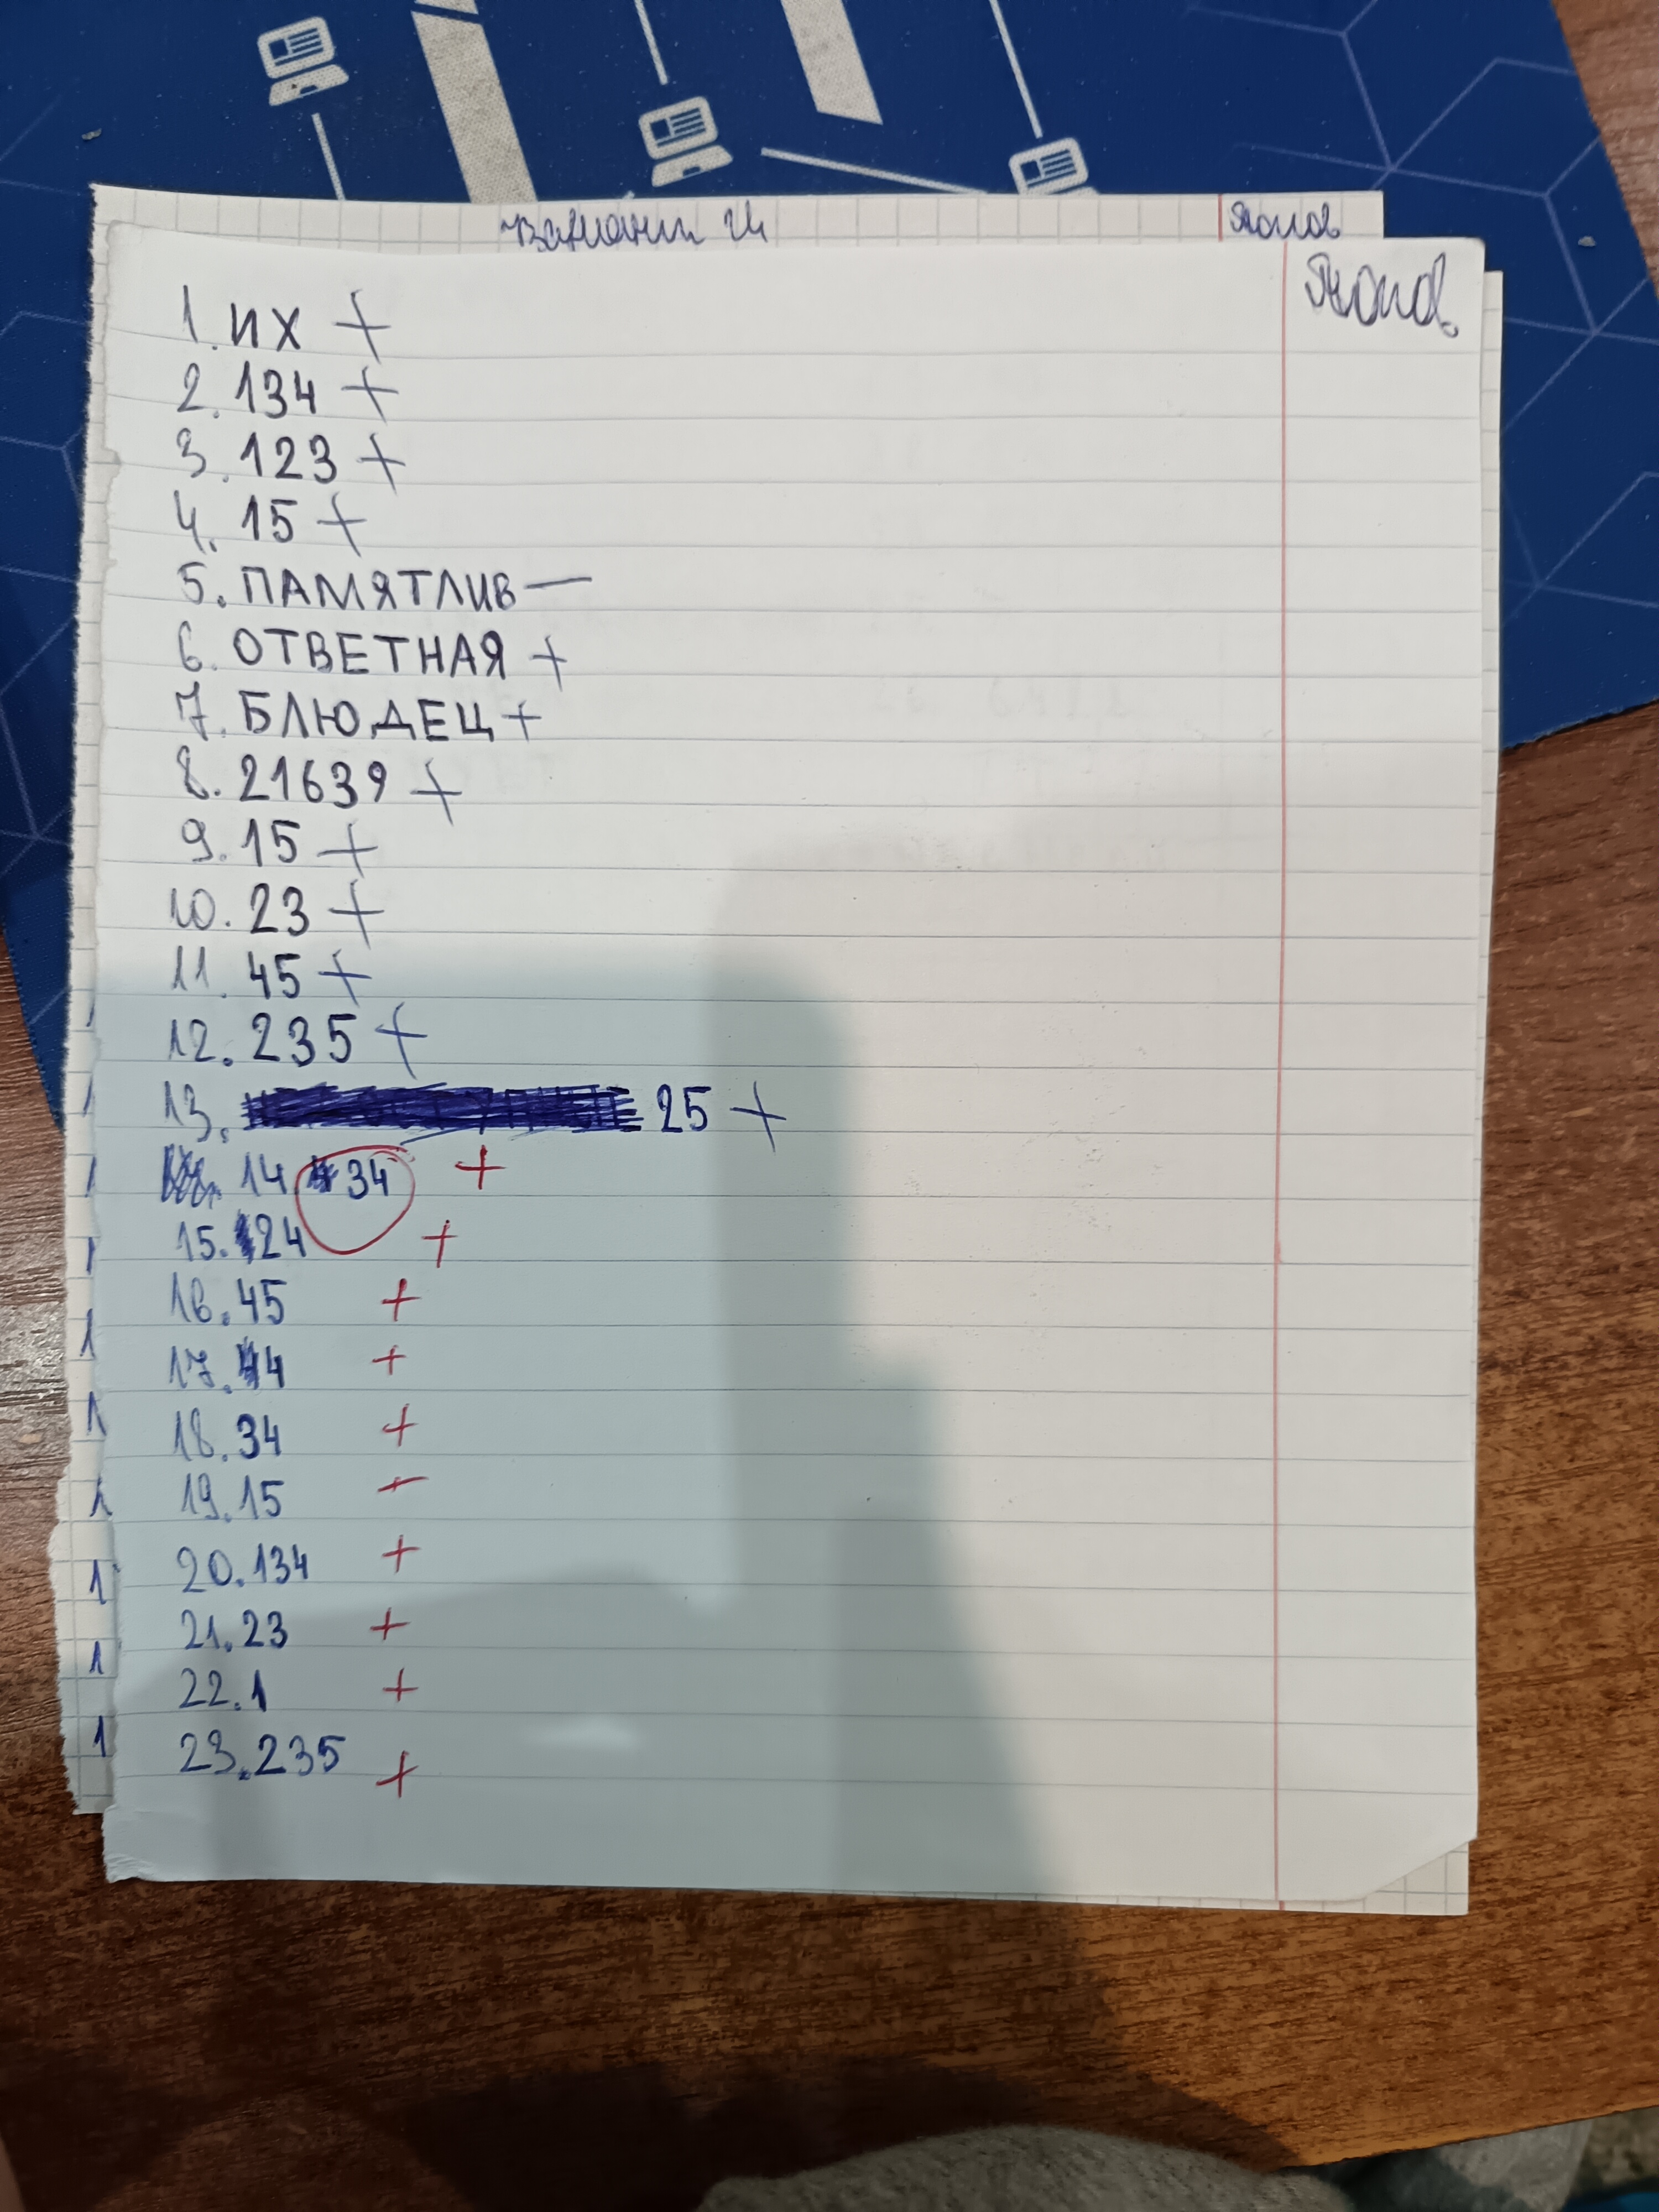 Вариант 24
1. ИХ +
2. 134 +
3. 123 +
4. 15 +
5. ПАМЯТЛИВ —
6. ОТВЕТНАЯ +
7. БЛЮДЕЦ +
8. 21639 +
9. 15 +
10. 23 +
11. 45 +
12. 235 +
13. 25 +
14. 34 +
15. 24 +
16. 45 +
17. 4 +
18. 34 +
19. 15 −
20. 134 +
21. 23 +
22. 1 +
23. 235 +